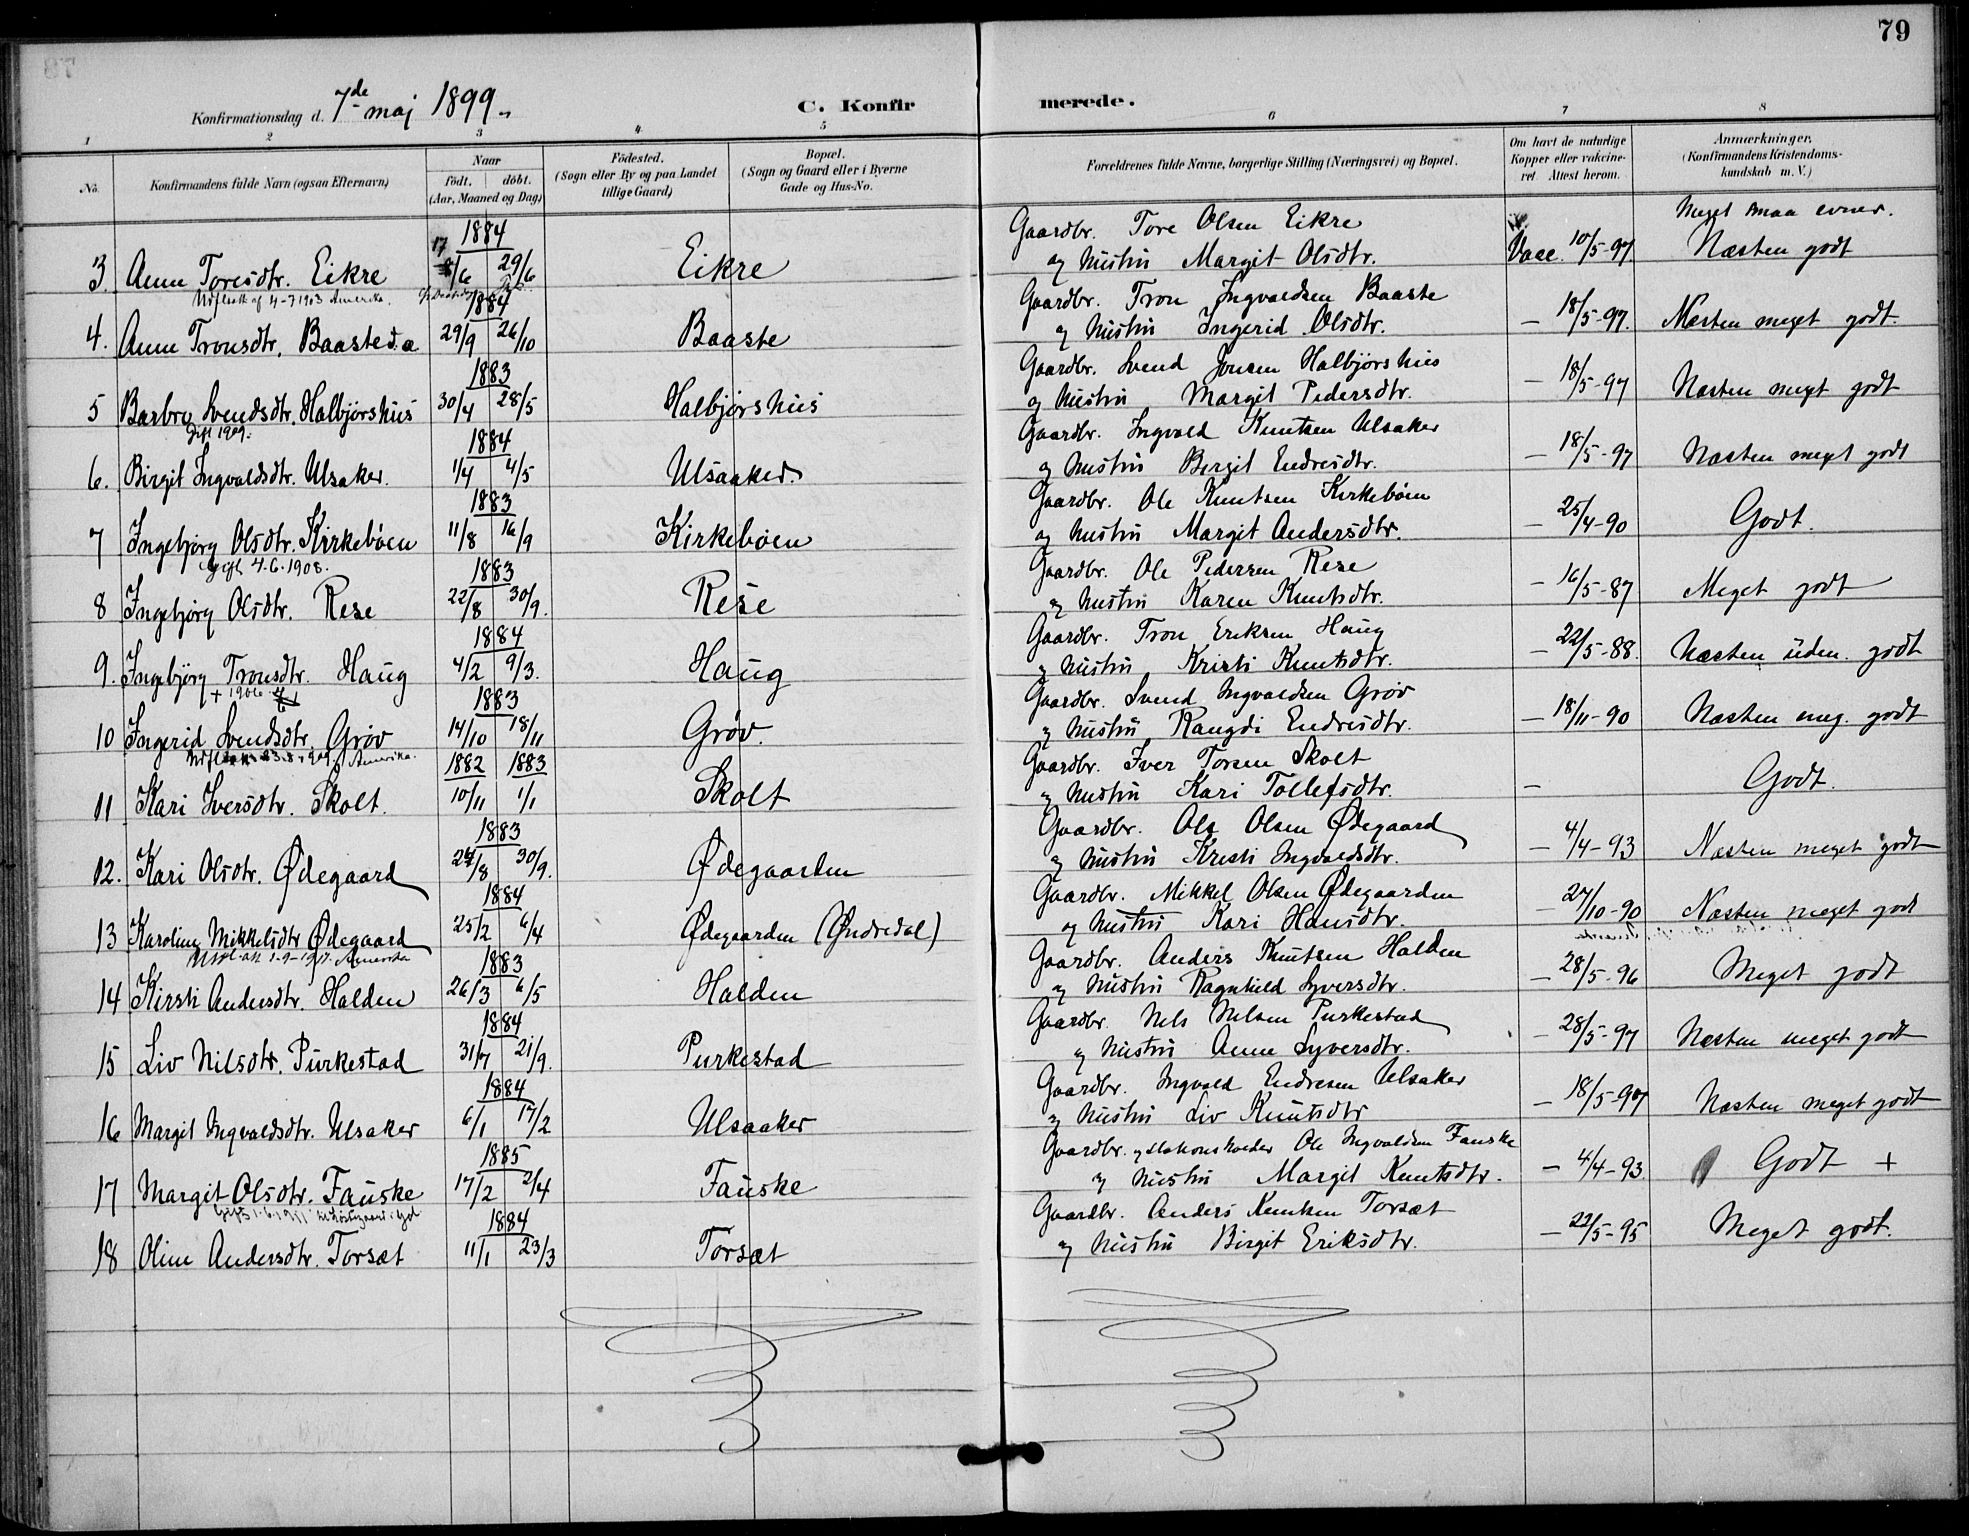 79
Konfirmationsdag d. 7de maj 1899. C. Konfirmerede.
1 2 3 4 5 6 7 8
No. Konfirmandens fulde Navn (ogsaa Efternavn) Naar født. døbt. (Aar, Maaned og Dag) Födested. (Sogn eller By og paa Landet tillige Gaard) Bopæl. (Sogn og Gaard eller i Byerne Gade og Hus-No. Forældrenes fulde Navne, borgerlige Stilling (Næringsvei) og Bopæl. Om havt de naturlige Kopper eller vakcineret. Attest herom. Anmærkninger. (Konfirmandens Kristendomskundskab m. V.)
1884 Gaardbr. Tore Olsen Eikre Meget smaa evner.
3. Anne Toresdtr. Eikre 17/6 29/6 Eikre og Hustru Margit Olsdtr. Vacc. 10/5-97 Næsten godt
Udfl. att. af 4-7 1903 Amerika.
1884 Gaardbr. Tron Ingvaldsen Baaste
4. Anne Tronsdtr. Baaste d.æ 29/9 26/10 Baaste og Hustru Ingerid Olsdtr. — 18/5-97. Næsten meget godt.
1883 Gaardbr. Svend Jonsen Halbjørshus
5 Barbro Svendsdtr. Halbjørshus 30/4 28/5 Halbjørshus og Hustru Margit Pedersdtr. — 18/5-97 Næsten meget godt
Gift 1909.
1884 Gaardbr. Ingvald Knutsen Ulsaker
6. Birgit Ingvaldsdtr. Ulsaker. 1/4 4/5 Ulsaaker. og Hustru Birgit Endresdtr. — 18/5-97 Næsten meget godt
1883 Gaardbr. Ole Knutsen Kirkebøen
7 Ingebjørg Olsdtr. Kirkebøen 11/8 16/9 Kirkebøen og Hustru Margit Andersdtr. — 25/4-90 Godt.
Gift 4.6.1908.
1883 Gaardbr. Ole Pedersen Rese
8 Ingebjørg Olsdtr. Rese 22/8 30/9. Rese og Hustru Karen Knutsdtr. — 16/5-87 Meget godt
1884 Gaardbr. Tron Eriksen Haug
9. Ingebjørg Tronsdtr. Haug 4/2 9/3. Haug og Hustru Kristi Knutsdtr. — 22/5-88. Næsten uden godt
+ 1906
1883 Gaardbr. Svend Ingvaldsen Grøv
10 Ingerid Svendsdtr. Grøv 14/10 18/11 Grøv. og Hustru Rangdi Endresdtr. — 18/11-90 Næsten meg. godt
Amerika.
1882 1883 Gaardbr. Iver Torsen Skolt
11 Kari Iversdtr. Skolt. 10/11 1/1 Skolt og Hustru Kari Tollefsdtr. — Godt.
1883 Gaardbr. Ole Olsen Ødegaard
12. Kari Olsdtr. Ødegaard 24/8 30/9. Ødegaarden og Hustru Kristi Ingvaldsdtr. — 4/4-93 Næsten meget godt
1884 Gaardbr. Mikkel Olsen Ødegaarden
13 Karoline Mikkelsdtr Ødegaard 25/2 6/4 Ødegaarden (Øndredal) og Hustru Kari Hansdtr. — 27/10-90 Næsten meget godt
Amerika
1883 Gaardbr. Anders Knutsen Halden
14 Kirsti Andersdtr. Halden 26/3 6/5 Halden og Hustru Ragnhild Syversdtr. — 28/5-96 Meget godt
1884 Gaardbr. Nels Nelsen Purkestad
15 Liv Nilsdtr. Purkestad 31/7 21/9. Purkestad og Hustru Anne Syversdtr. — 28/5-97 Næsten meget godt
1884 Gaardbr. Ingvald Endresen Ulsaker
16 Margit Ingvaldsdtr. Ulsaker 6/1 17/2 Ulsaaker og Hustru Liv Knutsdtr — 18/5-97 Næsten meget godt
1885 Gaardbr. og Stationsholder Ole Ingvaldsen Fauske
17 Margit Olsdtr. Fauske 17/2 2/4 Fauske og Hustru Margit Knutsdtr. — 4/4-93. Godt +
Gift 1.6.1911
1884 Gaardbr. Anders Knutsen Torsæt
18 Oline Andersdtr. Torsæt 11/1 23/3 Torsæt og Hustru Birgit Eriksdtr. — 22/5-95 Meget godt.